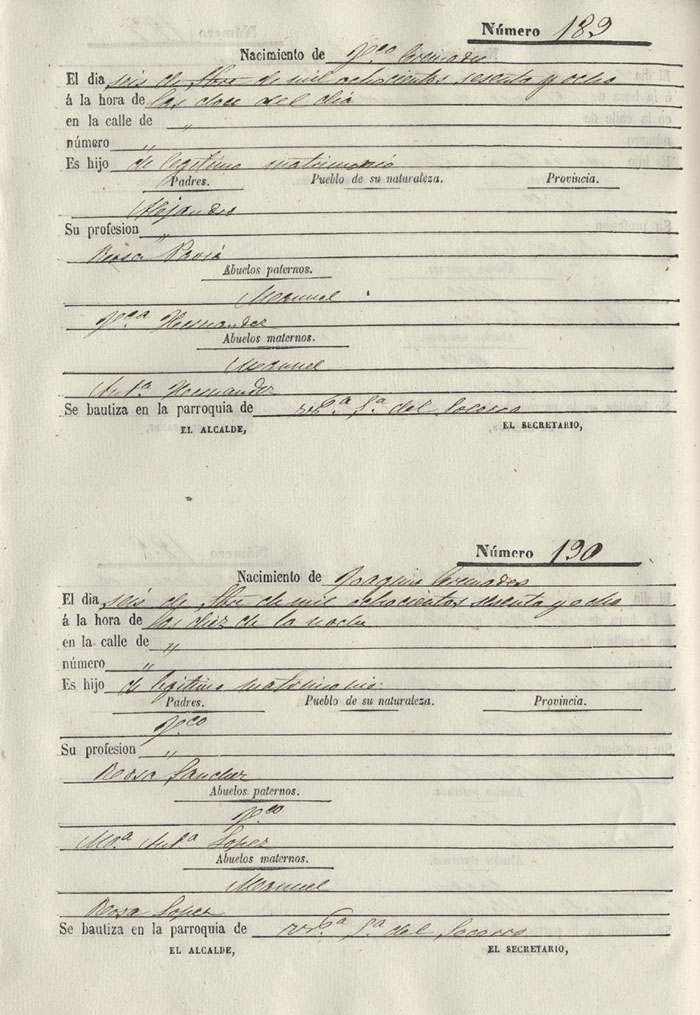 Número 189
Nacimiento de Fco Cremades
El dia seis de 9bre de mil ochocientos sesenta y ocho
á la hora de las doce del dia
en la calle de "
número "
Es hijo de legitimo matrimonio
Padres. Pueblo de su naturaleza. Provincia.
Alejandro
Su profesion "
Rosa Pavia
Abuelos paternos.
Manuel
Fca Hernandez
Abuelos maternos.
Manuel
Anta Hernandez
Se bautiza en la parroquia de Sa del Socorro
EL ALCALDE, EL SECRETARIO,
Número 190
Nacimiento de Joaquin Cremades
El dia seis de 9bre de mil ochocientos sesenta y ocho
á la hora de las diez de la noche
en la calle de "
número "
Es hijo de legitimo matrimonio
Padres. Pueblo de su naturaleza. Provincia.
Fco
Su profesion "
Rosa Sanchez
Abuelos paternos.
Fco
Ma Anta Lopez
Abuelos maternos.
Manuel
Rosa Lopez
Se bautiza en la parroquia de Sa del Socorro
EL ALCALDE, EL SECRETARIO,